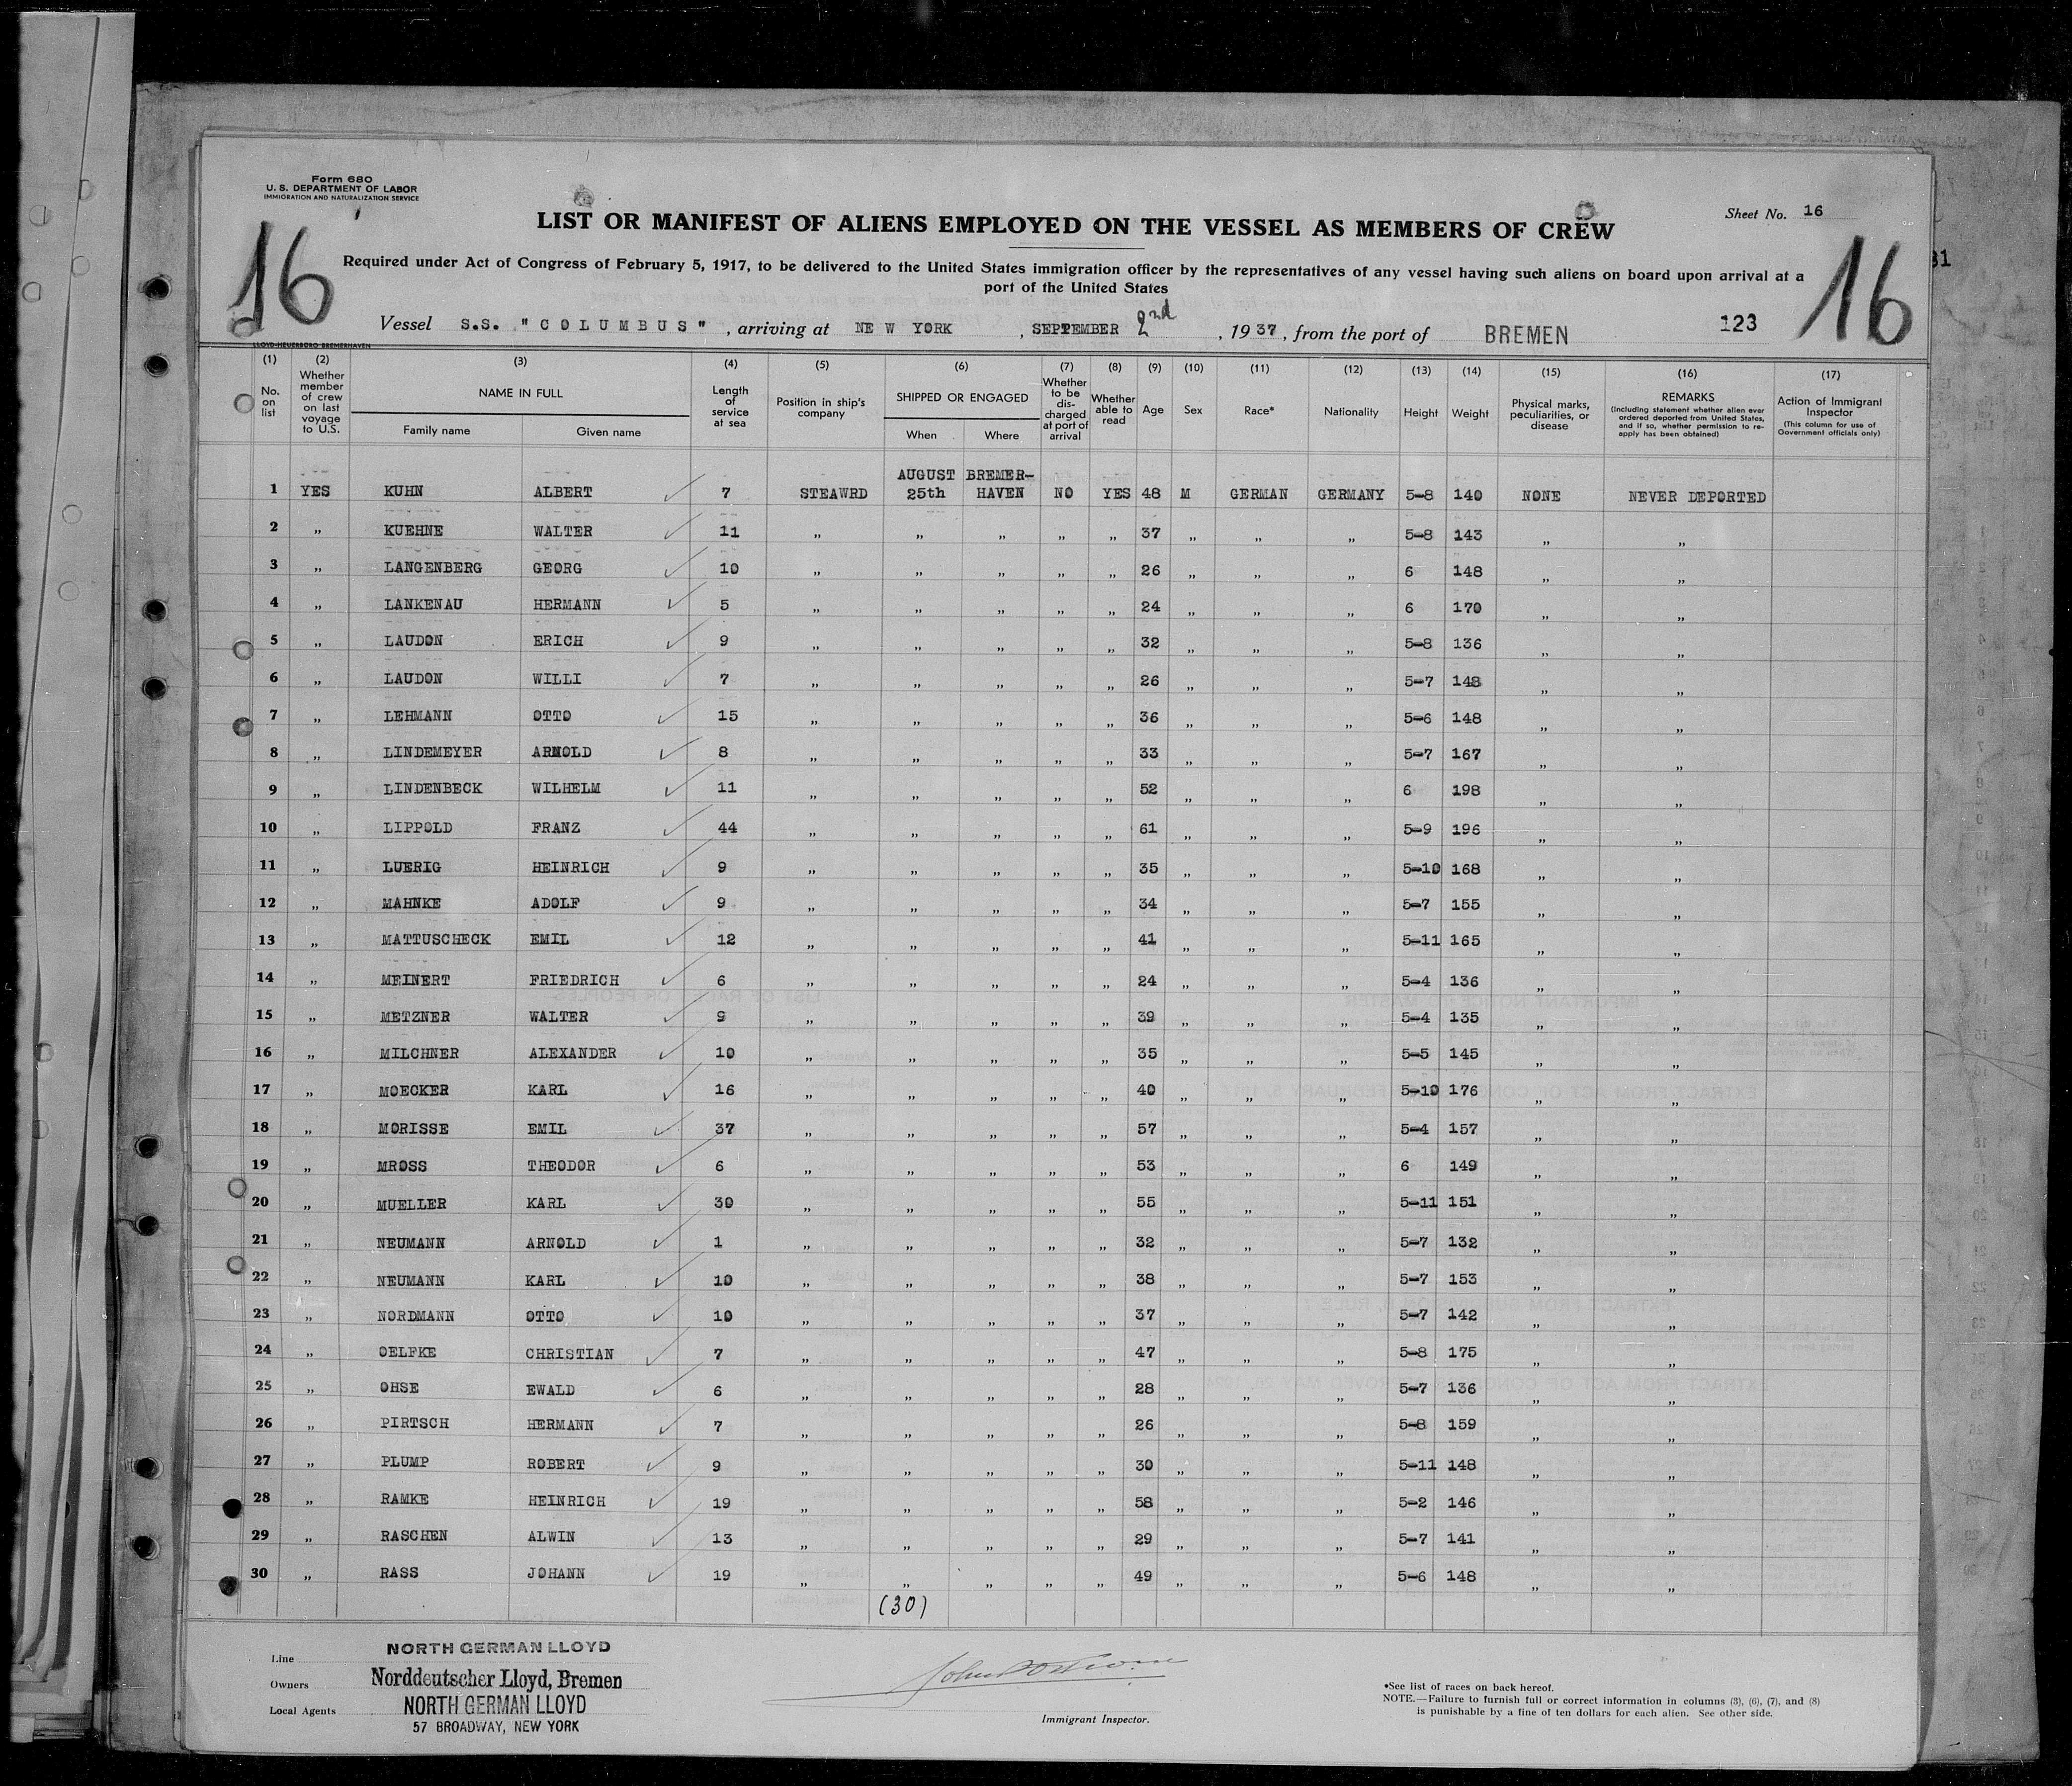 Form 680
U. S. DEPARTMENT OF LABOR
IMMIGRATION AND NATURALIZATION SERVICE
Sheet No. 16
LIST OR MANIFEST OF ALIENS EMPLOYED ON THE VESSEL AS MEMBERS OF CREW
16
16
31
Required under Act of Congress of February 5, 1917, to be delivered to the United States immigration officer by the representatives of any vessel having such aliens on board upon arrival at a
port of the United States
123
Vessel S.S. "COLUMBUS", arriving at NEW YORK, SEPTEMBER 2nd, 1937, from the port of BREMEN
LLOYD-HEUERBÜRO BREMERHAVEN
(1) (2) (3) (4) (5) (6) (7) (8) (9) (10) (11) (12) (13) (14) (15) (16) (17)
No. on list
Whether member of crew on last voyage to U.S.
NAME IN FULL
Family name Given name
Length of service at sea
Position in ship's company
SHIPPED OR ENGAGED
When Where
Whether to be discharged at port of arrival
Whether able to read
Age
Sex
Race*
Nationality
Height
Weight
Physical marks, peculiarities, or disease
REMARKS
(Including statement whether alien ever ordered deported from United States, and if so, whether permission to reapply has been obtained)
Action of Immigrant Inspector
(This column for use of Government officials only)
AUGUST BREMER-
1 YES KUHN ALBERT 7 STEAWRD 25th HAVEN NO YES 48 M GERMAN GERMANY 5-8 140 NONE NEVER DEPORTED
2 " KUEHNE WALTER 11 " " " " " 37 " " " 5-8 143 " "
3 " LANGENBERG GEORG 10 " " " " " 26 " " " 6 148 " "
4 " LANKENAU HERMANN 5 " " " " " 24 " " " 6 170 " "
5 " LAUDON ERICH 9 " " " " " 32 " " " 5-8 136 " "
6 " LAUDON WILLI 7 " " " " " 26 " " " 5-7 148 " "
7 " LEHMANN OTTO 15 " " " " " 36 " " " 5-6 148 " "
8 " LINDEMEYER ARNOLD 8 " " " " " 33 " " " 5-7 167 " "
9 " LINDENBECK WILHELM 11 " " " " " 52 " " " 6 198 " "
10 " LIPPOLD FRANZ 44 " " " " " 61 " " " 5-9 196 " "
11 " LUERIG HEINRICH 9 " " " " " 35 " " " 5-10 168 " "
12 " MAHNKE ADOLF 9 " " " " " 34 " " " 5-7 155 " "
13 " MATTUSCHECK EMIL 12 " " " " " 41 " " " 5-11 165 " "
14 " MEINERT FRIEDRICH 6 " " " " " 24 " " " 5-4 136 " "
15 " METZNER WALTER 9 " " " " " 39 " " " 5-4 135 " "
16 " MILCHNER ALEXANDER 10 " " " " " 35 " " " 5-5 145 " "
17 " MOECKER KARL 16 " " " " " 40 " " " 5-10 176 " "
18 " MORISSE EMIL 37 " " " " " 57 " " " 5-4 157 " "
19 " MROSS THEODOR 6 " " " " " 53 " " " 6 149 " "
20 " MUELLER KARL 30 " " " " " 55 " " " 5-11 151 " "
21 " NEUMANN ARNOLD 1 " " " " " 32 " " " 5-7 132 " "
22 " NEUMANN KARL 10 " " " " " 38 " " " 5-7 153 " "
23 " NORDMANN OTTO 10 " " " " " 37 " " " 5-7 142 " "
24 " OELFKE CHRISTIAN 7 " " " " " 47 " " " 5-8 175 " "
25 " OHSE EWALD 6 " " " " " 28 " " " 5-7 136 " "
26 " PIRTSCH HERMANN 7 " " " " " 26 " " " 5-8 159 " "
27 " PLUMP ROBERT 9 " " " " " 30 " " " 5-11 148 " "
28 " RAMKE HEINRICH 19 " " " " " 58 " " " 5-2 146 " "
29 " RASCHEN ALWIN 13 " " " " " 29 " " " 5-7 141 " "
30 " RASS JOHANN 19 " " " " " 49 " " " 5-6 148 " "
(30)
Line NORTH GERMAN LLOYD
Owners Norddeutscher Lloyd, Bremen
Local Agents NORTH GERMAN LLOYD
57 BROADWAY, NEW YORK
Immigrant Inspector.
*See list of races on back hereof.
NOTE.—Failure to furnish full or correct information in columns (3), (6), (7), and (8)
is punishable by a fine of ten dollars for each alien. See other side.